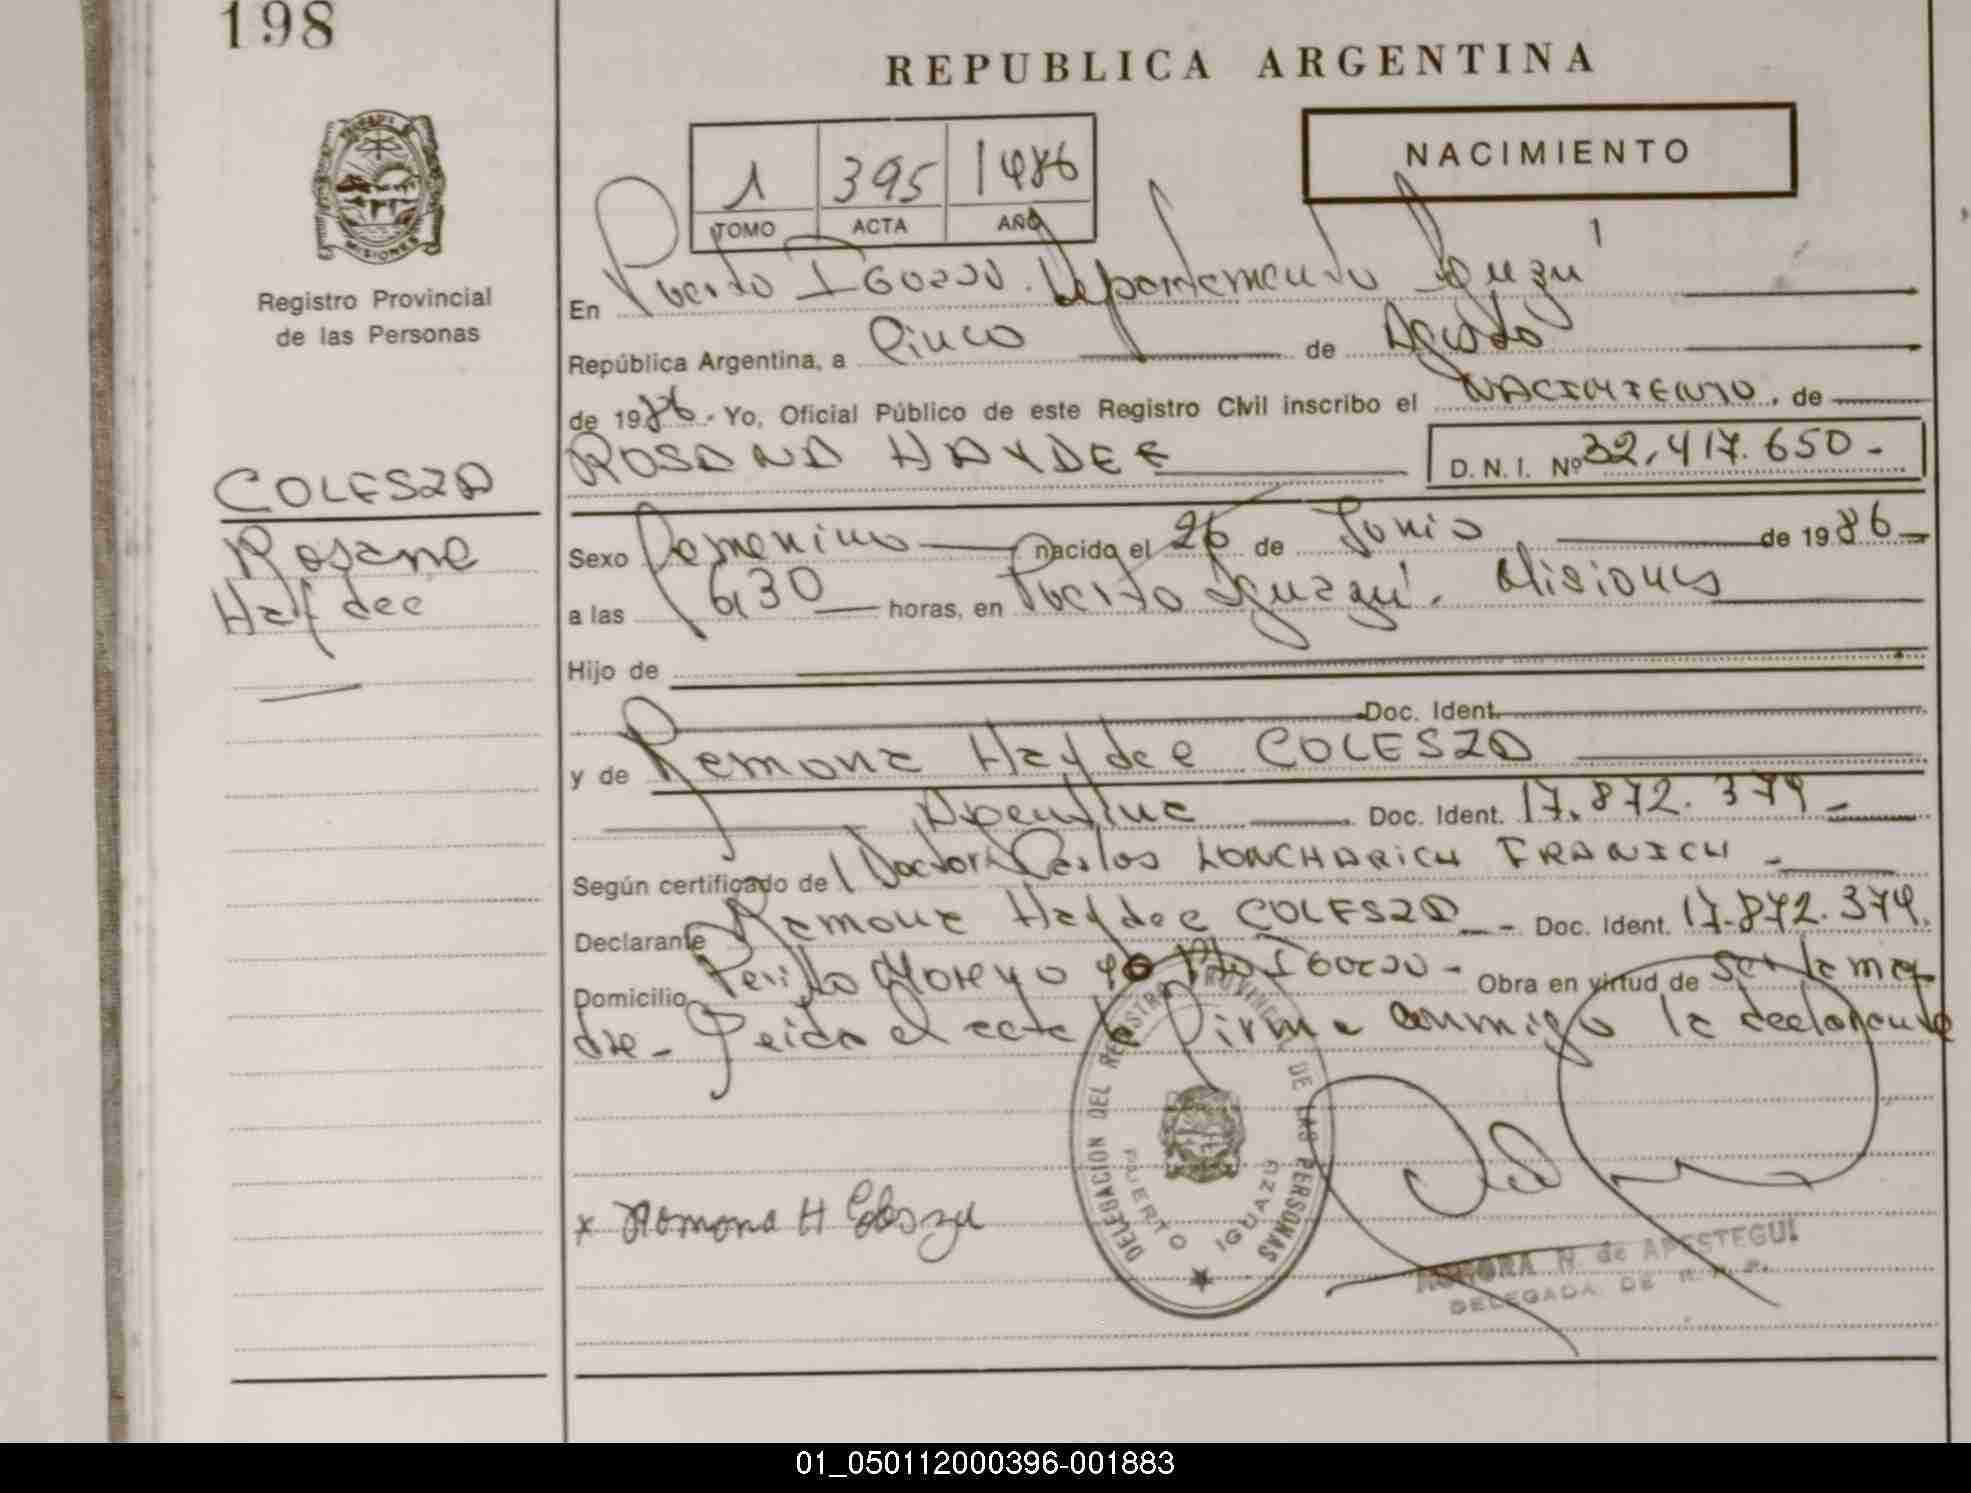 198
REPUBLICA ARGENTINA
NACIMIENTO
1 395 1986
TOMO ACTA AÑO
MISIONES
Registro Provincial
de las Personas
En Puerto IGUAZU. Departamento Iguazú
República Argentina, a Cinco de Agosto
de 1986. Yo, Oficial Público de este Registro Civil inscribo el NACIMIENTO, de
ROSANA HAYDEE D. N. I. Nº 32.417.650-
COLESZA
Rosana
Haydee
Sexo Femenino nacido el 26 de Junio de 1986
a las 6,30 horas, en Puerto Iguazú. Misiones
Hijo de
Doc. Ident.
y de Ramona Haydee COLESZA
Argentina Doc. Ident. 17.872.374
Según certificado del Doctor Carlos FRANICH
Declarante Ramona Haydee COLESZA Doc. Ident. 17.872.374.
Domicilio Perito Moreno Pto IGUAZU - Obra en virtud de ser la ma
dre - Leida el acta la firma conmigo la declarante
DELEGACION DEL REGISTRO PROVINCIAL DE LAS PERSONAS
PUERTO IGUAZU
x Ramona H Colesza
AURORA N. de APESTEGUI
DELEGADA DE R. P. P.
01_050112000396-001883